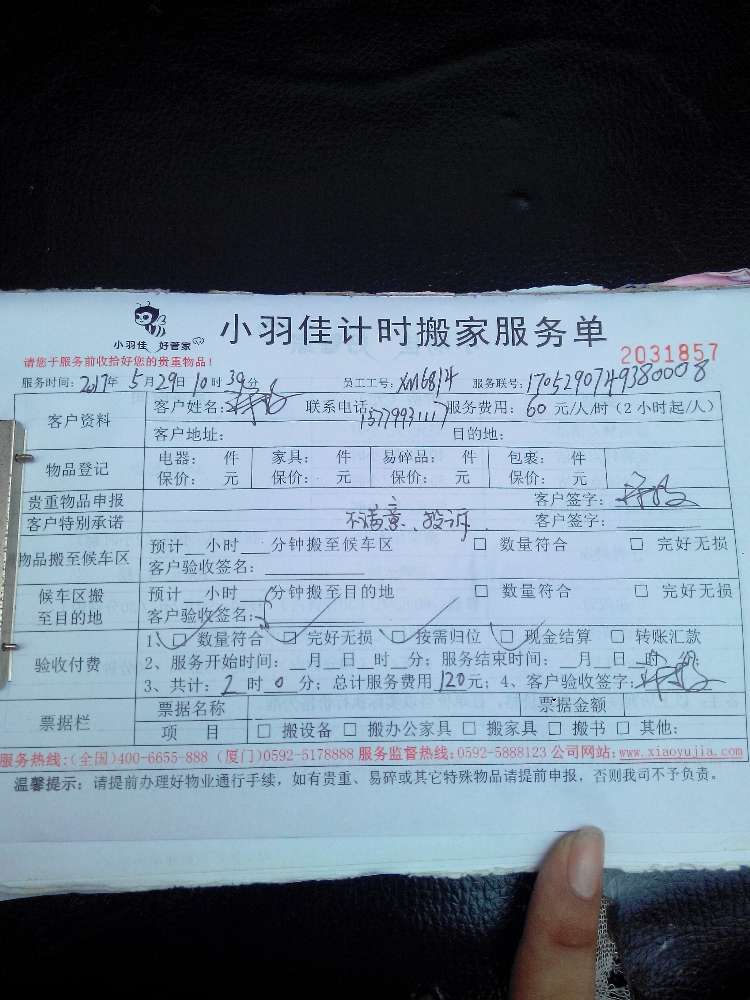 小羽佳 好管家
小羽佳计时搬家服务单
请您于服务前收拾好您的贵重物品!
2031857
服务时间: 2017年 5月29日 10时39分 员工工号: XM6814 服务联号: 17052907493800008
客户资料 客户姓名: 联系电话: 15779931117 服务费用: 60 元/人/时 (2小时起/人)
客户地址: 目的地:
物品登记 电器: 件 家具: 件 易碎品: 件 包裹: 件
保价: 元 保价: 元 保价: 元 保价: 元
贵重物品申报 客户签字:
客户特别承诺 不满意、投诉 客户签字:
物品搬至候车区 预计__小时__分钟搬至候车区 □ 数量符合 □ 完好无损
客户验收签名:
候车区搬至目的地 预计__小时__分钟搬至目的地 □ 数量符合 □ 完好无损
客户验收签名:
验收付费 1、□ 数量符合 □ 完好无损 □ 按需归位 □ 现金结算 □ 转账汇款
2、服务开始时间: __月__日__时__分; 服务结束时间: __月__日__时__分;
3、共计: 2 时 0 分; 总计服务费用 120元; 4、客户验收签字:
票据栏 票据名称 票据金额
项 目 □ 搬设备 □ 搬办公家具 □ 搬家具 □ 搬书 □ 其他:
服务热线:(全国)400-6655-888 (厦门)0592-5178888 服务监督热线:0592-5888123 公司网站:www.xiaoyujia.com
温馨提示: 请提前办理好物业通行手续, 如有贵重、易碎或其它特殊物品请提前申报, 否则我司不予负责。